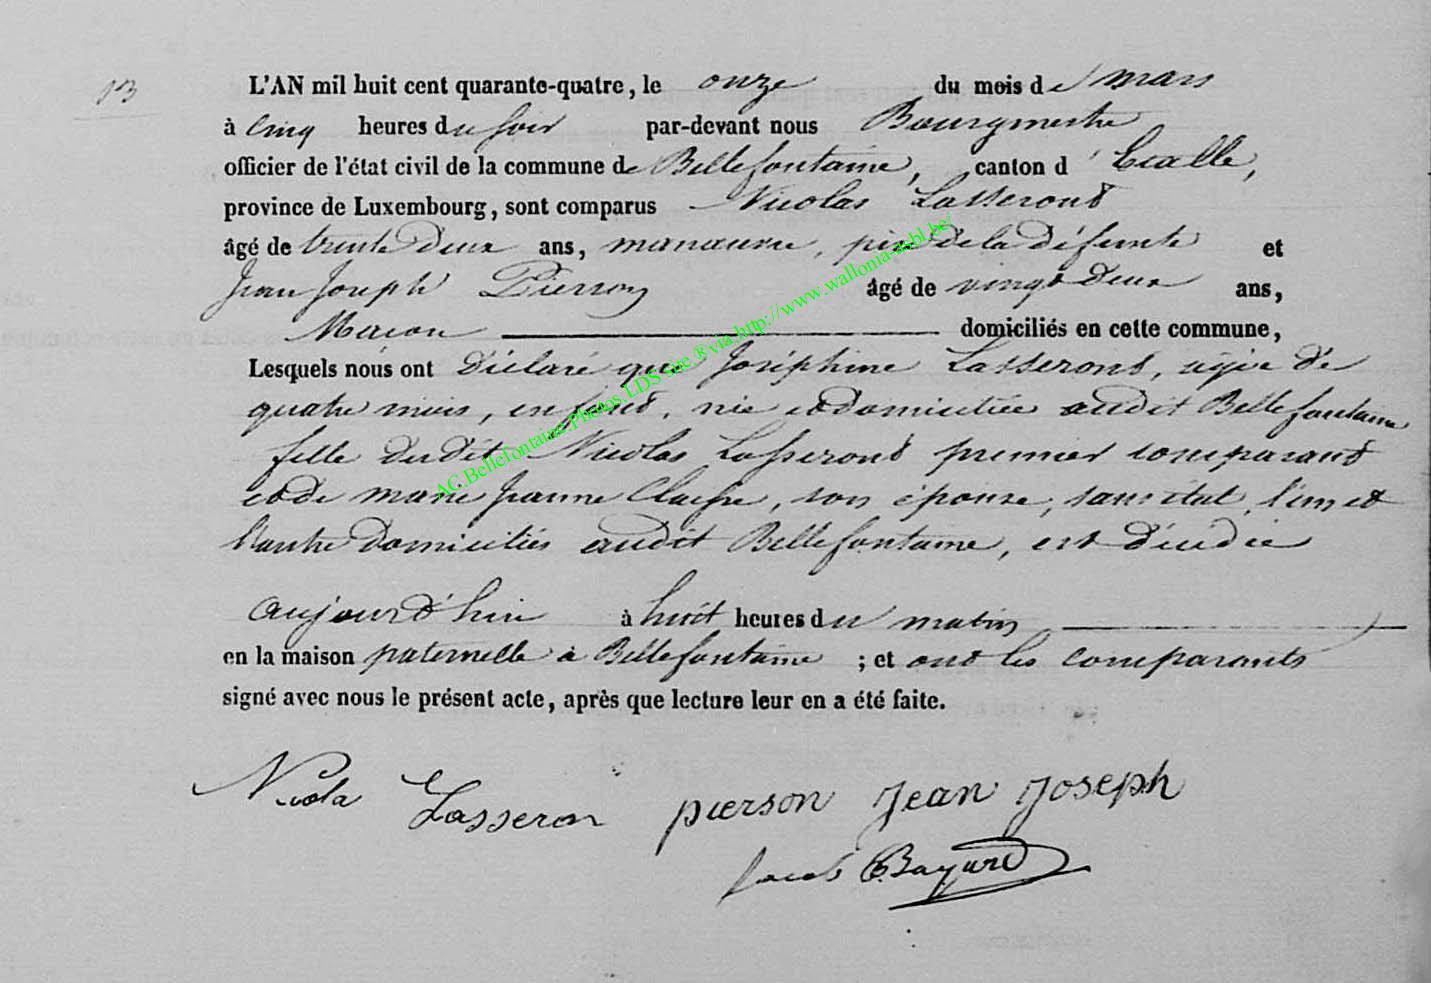 13
L'AN mil huit cent quarante-quatre, le onze du mois de mars
à cinq heures du soir par-devant nous Bourgmestre
officier de l'état civil de la commune de Bellefontaine, canton d'Etalle,
province de Luxembourg, sont comparus Nicolas Lasserond
âgé de trente deux ans, manœuvre, père de la défunte et
Jean Joseph Pierson âgé de vingt deux ans,
Maçon domiciliés en cette commune,
Lesquels nous ont déclaré que Joséphine Lasserond, agée de
quatre mois, enfant, née et domiciliée audit Bellefontaine
fille dudit Nicolas Lasserond premier comparant
et de marie Jeanne Claisse, son épouse, sans état, l'un et
l'autre domiciliés audit Bellefontaine, est décédée
aujourd'hui à huit heures du matin
en la maison paternelle à Bellefontaine ; et ont les comparants
signé avec nous le présent acte, après que lecture leur en a été faite.
Nicola Lasseron pierson Jean Joseph
Bayard
AC.Bellefontaine.Photos.LDS site ® via http://www.wallonia-asbl.be/